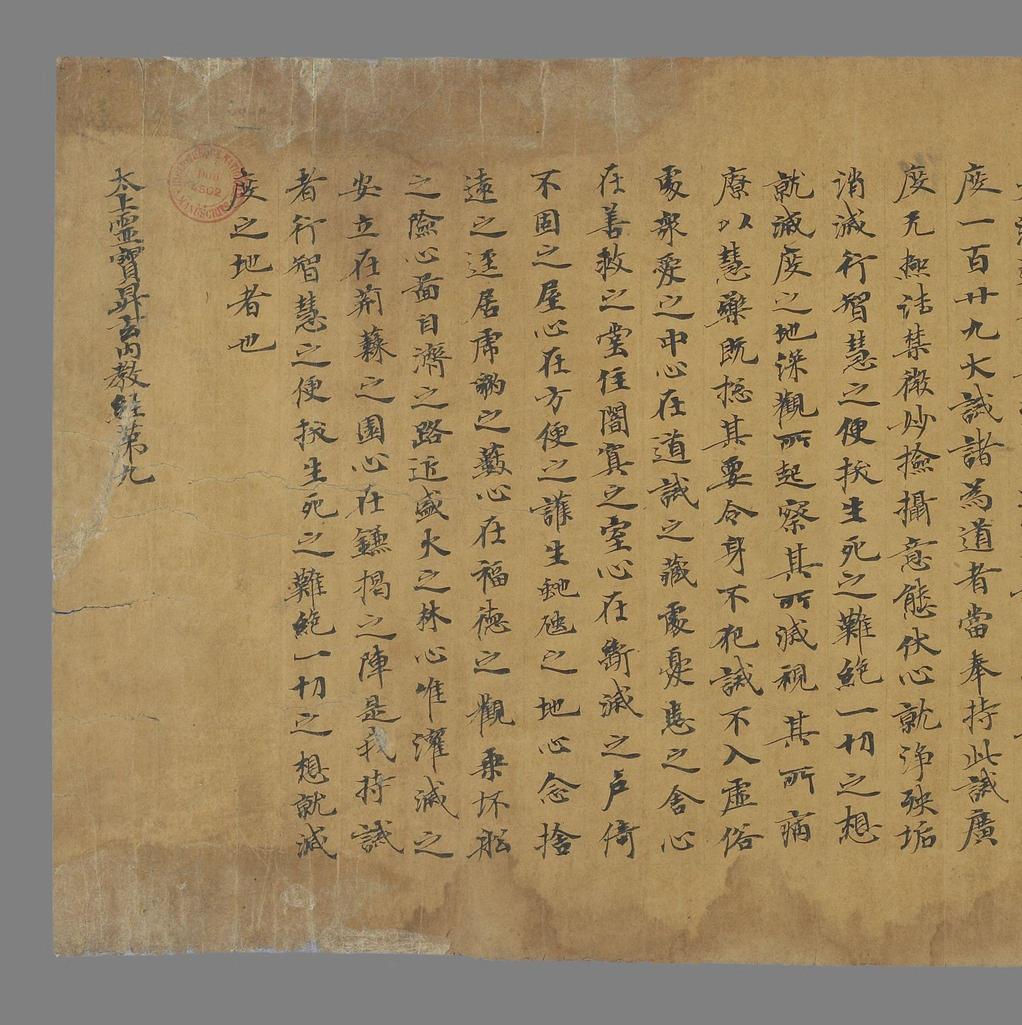 度一百廿九大誡諸為道者當奉持此誡廣
度无極法禁微妙撿攝意態伏心就浄殃垢
消滅行智慧之便拔生死之難絕一切之想
就滅度之地深觀所起察其所滅視其所病
療以慧藥既揔其要令身不犯誡不入虛俗
處衆愛之中心在道誡之藏處憂恚之舍心
在善救之堂住闇冥之室心在斷滅之戶倚
不固之屋心在方便之護生虵虺之地心念捨
遠之逕居虎豹之藪心在福德之觀乗坏船
之險心啚自濟之路近盛火之林心唯濯滅之
安立在荊蕀之園心在鐮揭之陣是我持誡
者行智慧之便拔生死之難絕一切之想就滅
度之地者也
太上靈寶昇玄內教經第九
Bibliothèque Nationale
MANUSCRITS